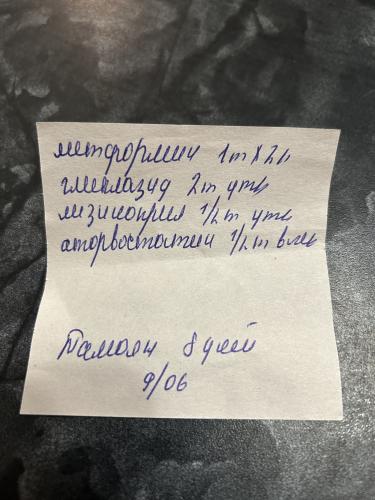 метформин 1т х 2р
гликлазид 2т утр
лизиноприл 1/2т утр
аторвостотин 1/2т веч
8 дней
9/06